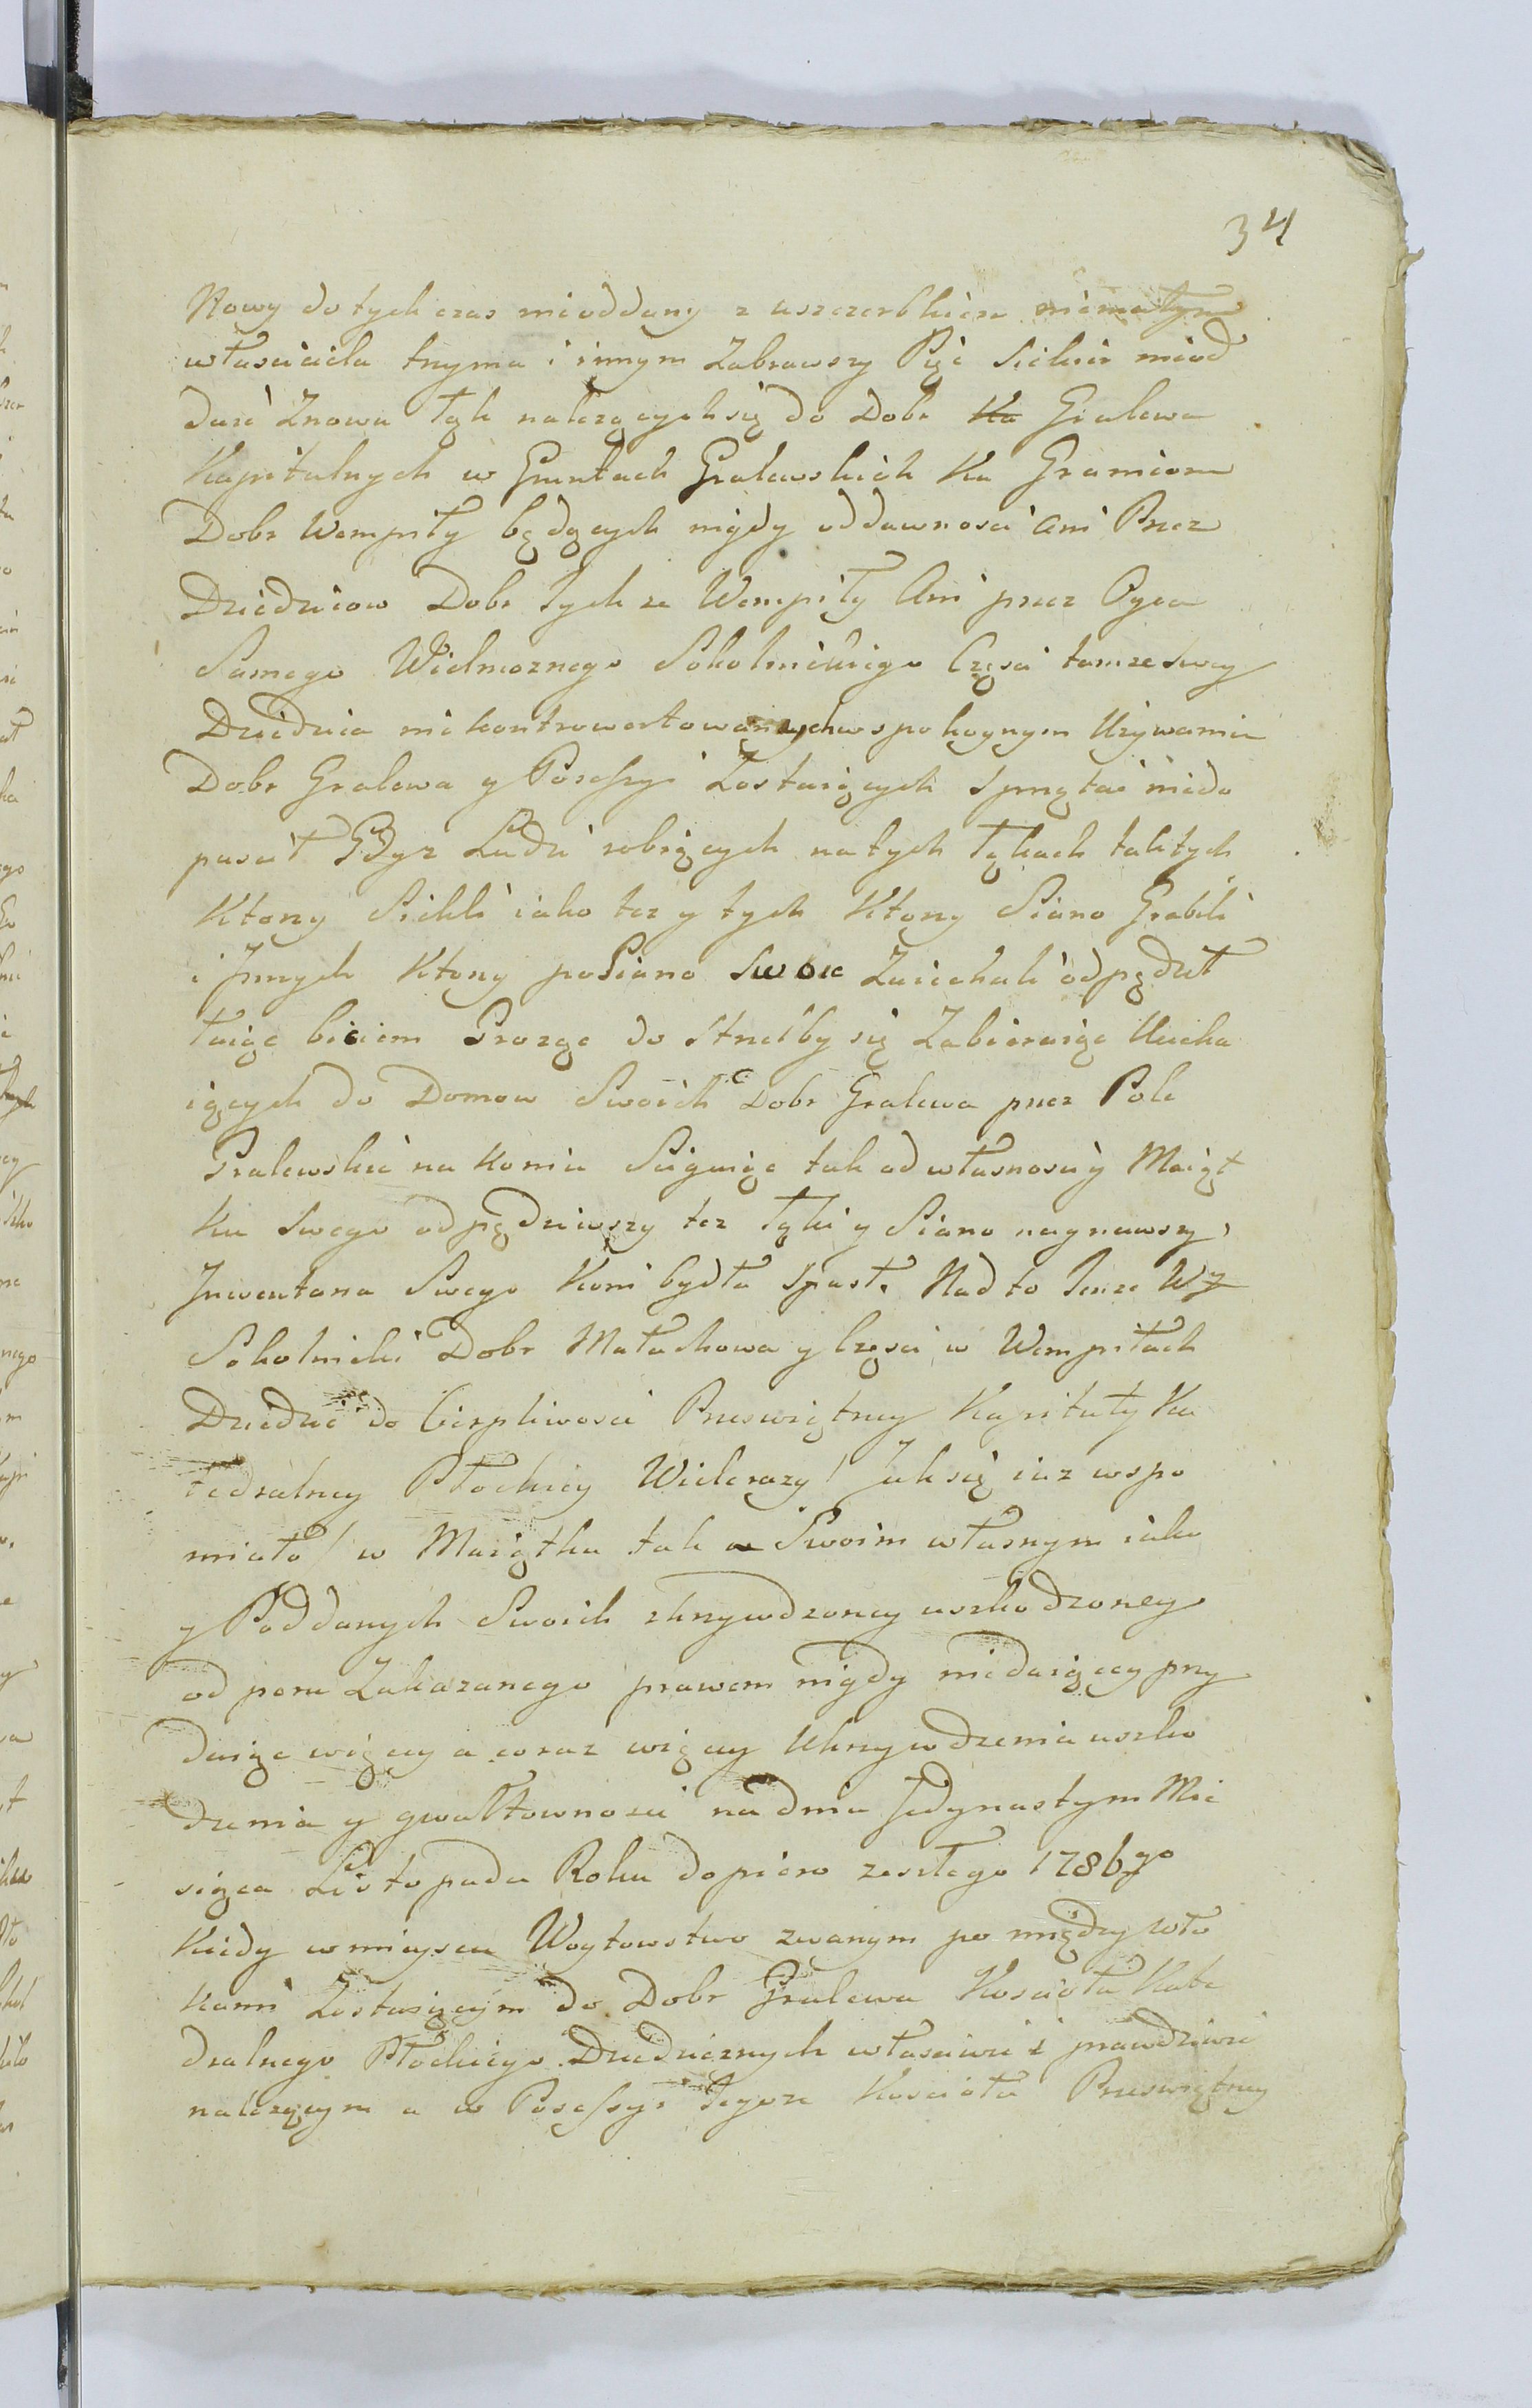 34
Nowy dotychczas nieoddany z uszczerbkiem niemałym
własciciela trzyma i innym Zabrawszy Pięc Siekier nieod
daie Znowu Łąk należących się do Dobr Ka Gralewa
Kapitulnych w Gruntach Gralewskich Ku Granicom
Dobr Wempiły będących nigdy oddawnosci ani Przez
Dziedzicow Dobr Tychże Wempiły Ani przez Oyca
Samego Wielmoznego Sokolnickiego Częsci tamże swey
Dziedzica niekontrowertowanych w spokoynym Używaniu
Dobr Gralewa y Possessyi Zostaiących Sprzątać niedo
puscił Gdyż Ludzi robiących na tych Łąkach tak tych
Ktorzy Siekli iako tez y tych Ktorzy Siano Grabili
i Jnnych Ktorzy po Siano Swoie Zaiechali odpędził
łaiąc biciem Grożąc do Strzelby się Zabieraiąc Ucieka
iących do Domow Swoich Dobr Gralewa przez Pole
Gralewskie na Koniu Scigaiąc tak od własnosci y Maiąt
Ku Swego odpędziwszy tez Łąki y Siano nagnawszy
Jnwentarza Swego Koni bydła Spasł. Nad to Tenże W
Sokolnicki Dobr Małachowa y Częsci w Wempiłach
Dziedzic do Cierpliwosci Przeswiętney Kapituły Ka
tedralney Płockiey Wielerazy / Jak się iuz wspo
mniało / w Maiątku tak w Swoim własnym iako
y Poddanych Swoich skrzywdzoney uszkodzoney
od poru Zakazanego prawem nigdy niedaiącey przy
daiąc więcey a coraz więcey Ukrzywdzenia uszko
dzenia y gwałtownosci na dniu Jedynastym Mie
siąca Listopada Roku dopiero zeszłego 1786go
Kiedy w mieyscu Woytowstwo zwanym pomiędzy wło
kami Zostaiącym do Dobr Gralewa Koscioła Kate
dralnego Płockiego Dziedzicznych własciwie i prawdziwie
należącym a w Possessyi Tegoż Koscioła Przeswiętney